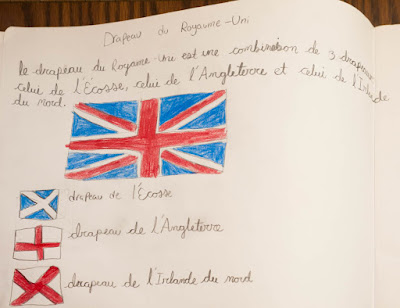 Drapeau du Royaume-Uni
le drapeau du Royame-Uni est une combinaison de 3 drapeaux
celui de l'Écosse, celui de l'Angleterre et celui de l'Irlande
du nord.
drapeau de l'Écosse
drapeau de l'Angleterre
drapeau de l'Irlande du nord